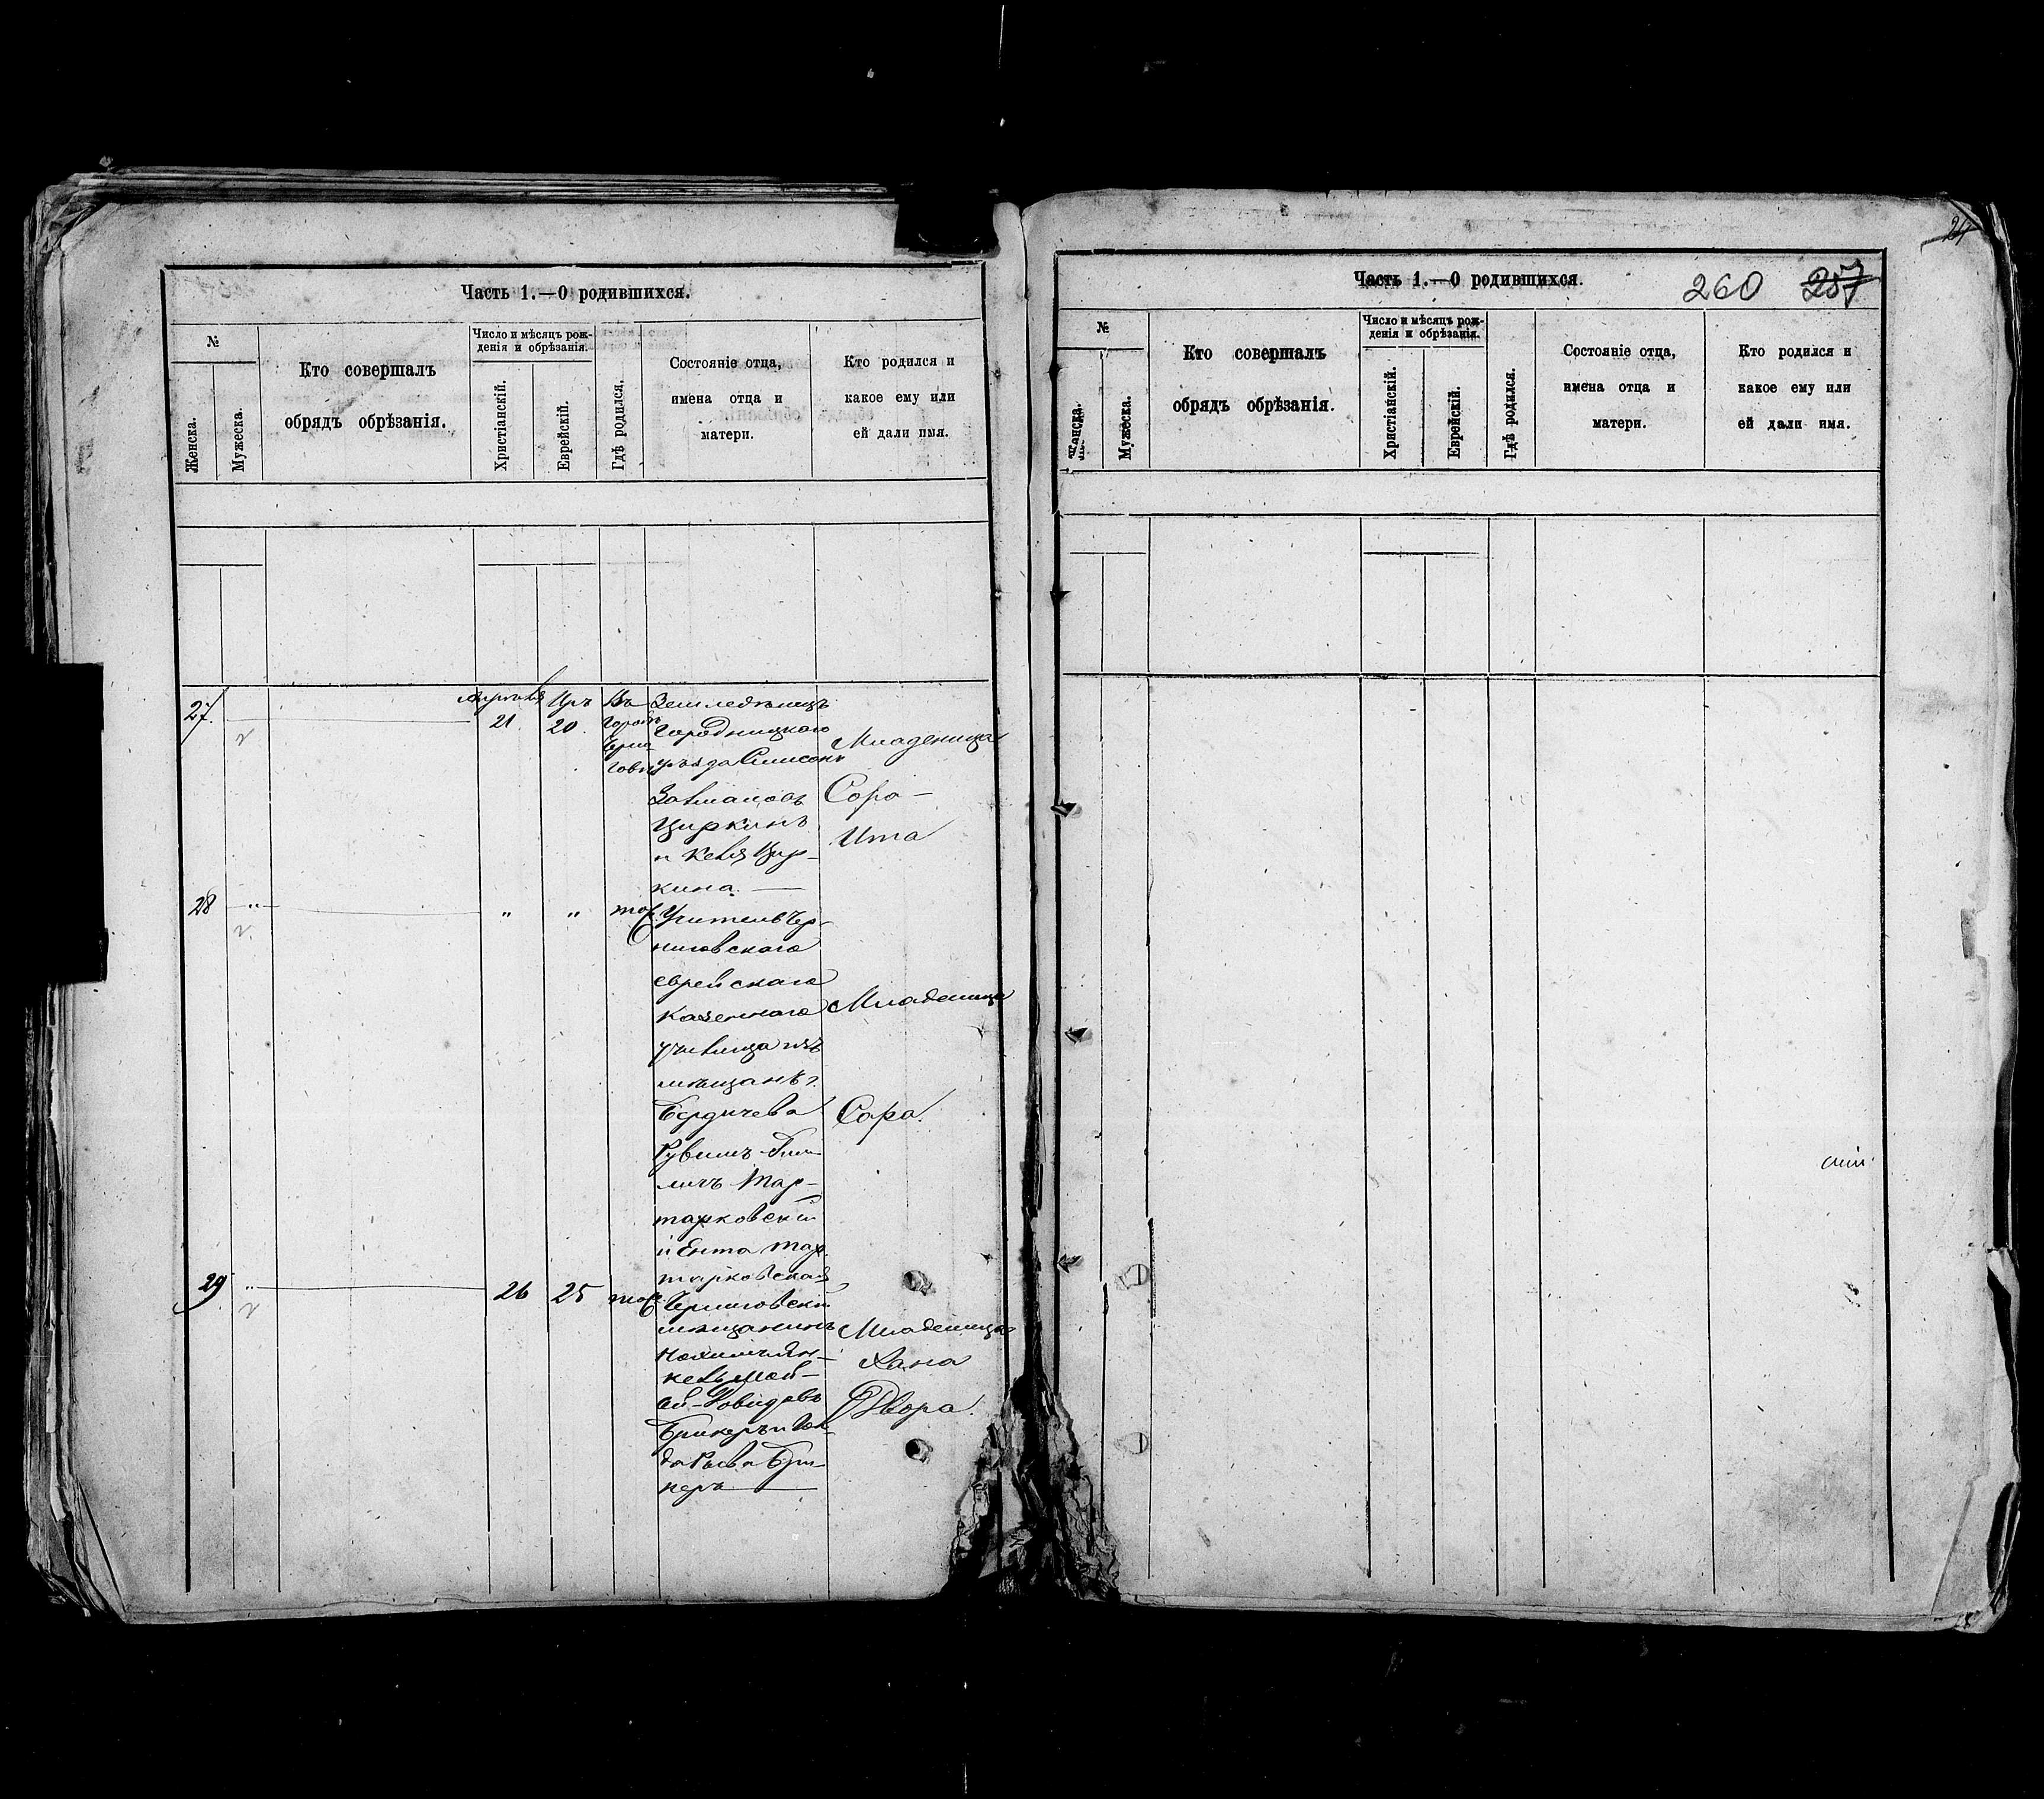 Часть 1.—О родившихся.
№
Женска.
Мужеска.
Кто совершалъ
обрядъ обрѣзанія.
Число и мѣсяцъ рож-
денія и обрѣзанія.
Христіанскій.
Еврейскій.
Гдѣ родился.
Состояніе отца,
имена отца и
матери.
Кто родился и
какое ему или
ей дали имя.
27.
Апрѣля
21
Иръ
20.
Въ
Городѣ
Черни
говѣ
Земледѣлецъ
Городницкаго
уѣзда Симсонъ
Залмановъ
Циркинъ
и Кейля Цир-
кина. —
Младеница
Сора —
Ита
28
"
"
"
тоже
Учитель Чер-
ниговскаго
еврейскаго
казеннаго
училища изъ
мѣщанъ г.
Бердичева
Рувимъ
Тар-
тарковскій
и Ента Тар-
тарковская
Младеница
Сора.
29
"
26
25
тоже
Черниговскій
мѣщанинъ
Нохимъ Ян-
кель Мой-
сей-Довидовъ
Брикеръ и Гол-
да Рыва Бри-
керъ. —
Младеница
Хана
Двора.
Часть 1.—О родившихся.
260 257
24
№
Женска.
Мужеска.
Кто совершалъ
обрядъ обрѣзанія.
Число и мѣсяцъ рож-
денія и обрѣзанія.
Христіанскій.
Еврейскій.
Гдѣ родился.
Состояніе отца,
имена отца и
матери.
Кто родился и
какое ему или
ей дали имя.